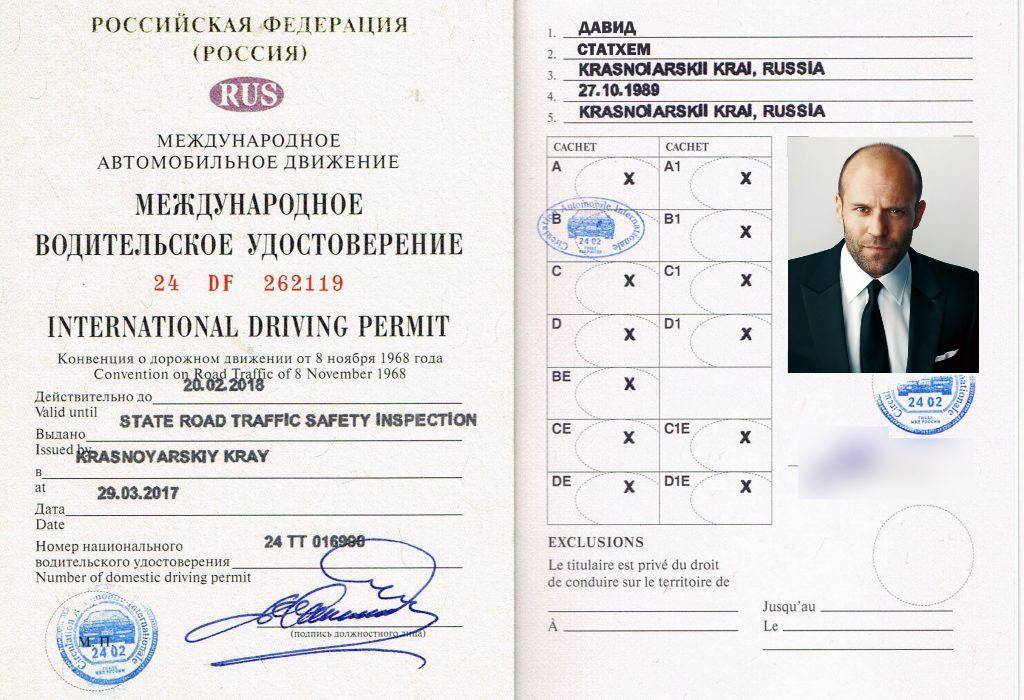 РОССИЙСКАЯ ФЕДЕРАЦИЯ
(РОССИЯ)
RUS
МЕЖДУНАРОДНОЕ
АВТОМОБИЛЬНОЕ ДВИЖЕНИЕ
МЕЖДУНАРОДНОЕ
ВОДИТЕЛЬСКОЕ УДОСТОВЕРЕНИЕ
24 DF 262119
INTERNATIONAL DRIVING PERMIT
Конвенция о дорожном движении от 8 ноября 1968 года
Convention on Road Traffic of 8 November 1968
Действительно до 20.02.2018
Valid until
Выдано STATE ROAD TRAFFIC SAFETY INSPECTION
Issued by
в KRASNOYARSKIY KRAY
at
Дата 29.03.2017
Date
Номер национального
водительского удостоверения 24 TT 016990
Number of domestic driving permit
(подпись должностного лица)
М П
Circulation Automobile Internationale
24 02
1. ДАВИД
2. СТАТХЕМ
3. KRASNOIARSKII KRAI, RUSSIA
4. 27.10.1989
5. KRASNOIARSKII KRAI, RUSSIA
CACHET CACHET
A X A1 X
B B1 X
Circulation Automobile Internationale
24 02
C X C1 X
D X D1 X
BE X
CE X C1E X
DE X D1E X
24 02
EXCLUSIONS
Le titulaire est privé du droit
de conduire sur le territoire de
Jusqu'au
À Le